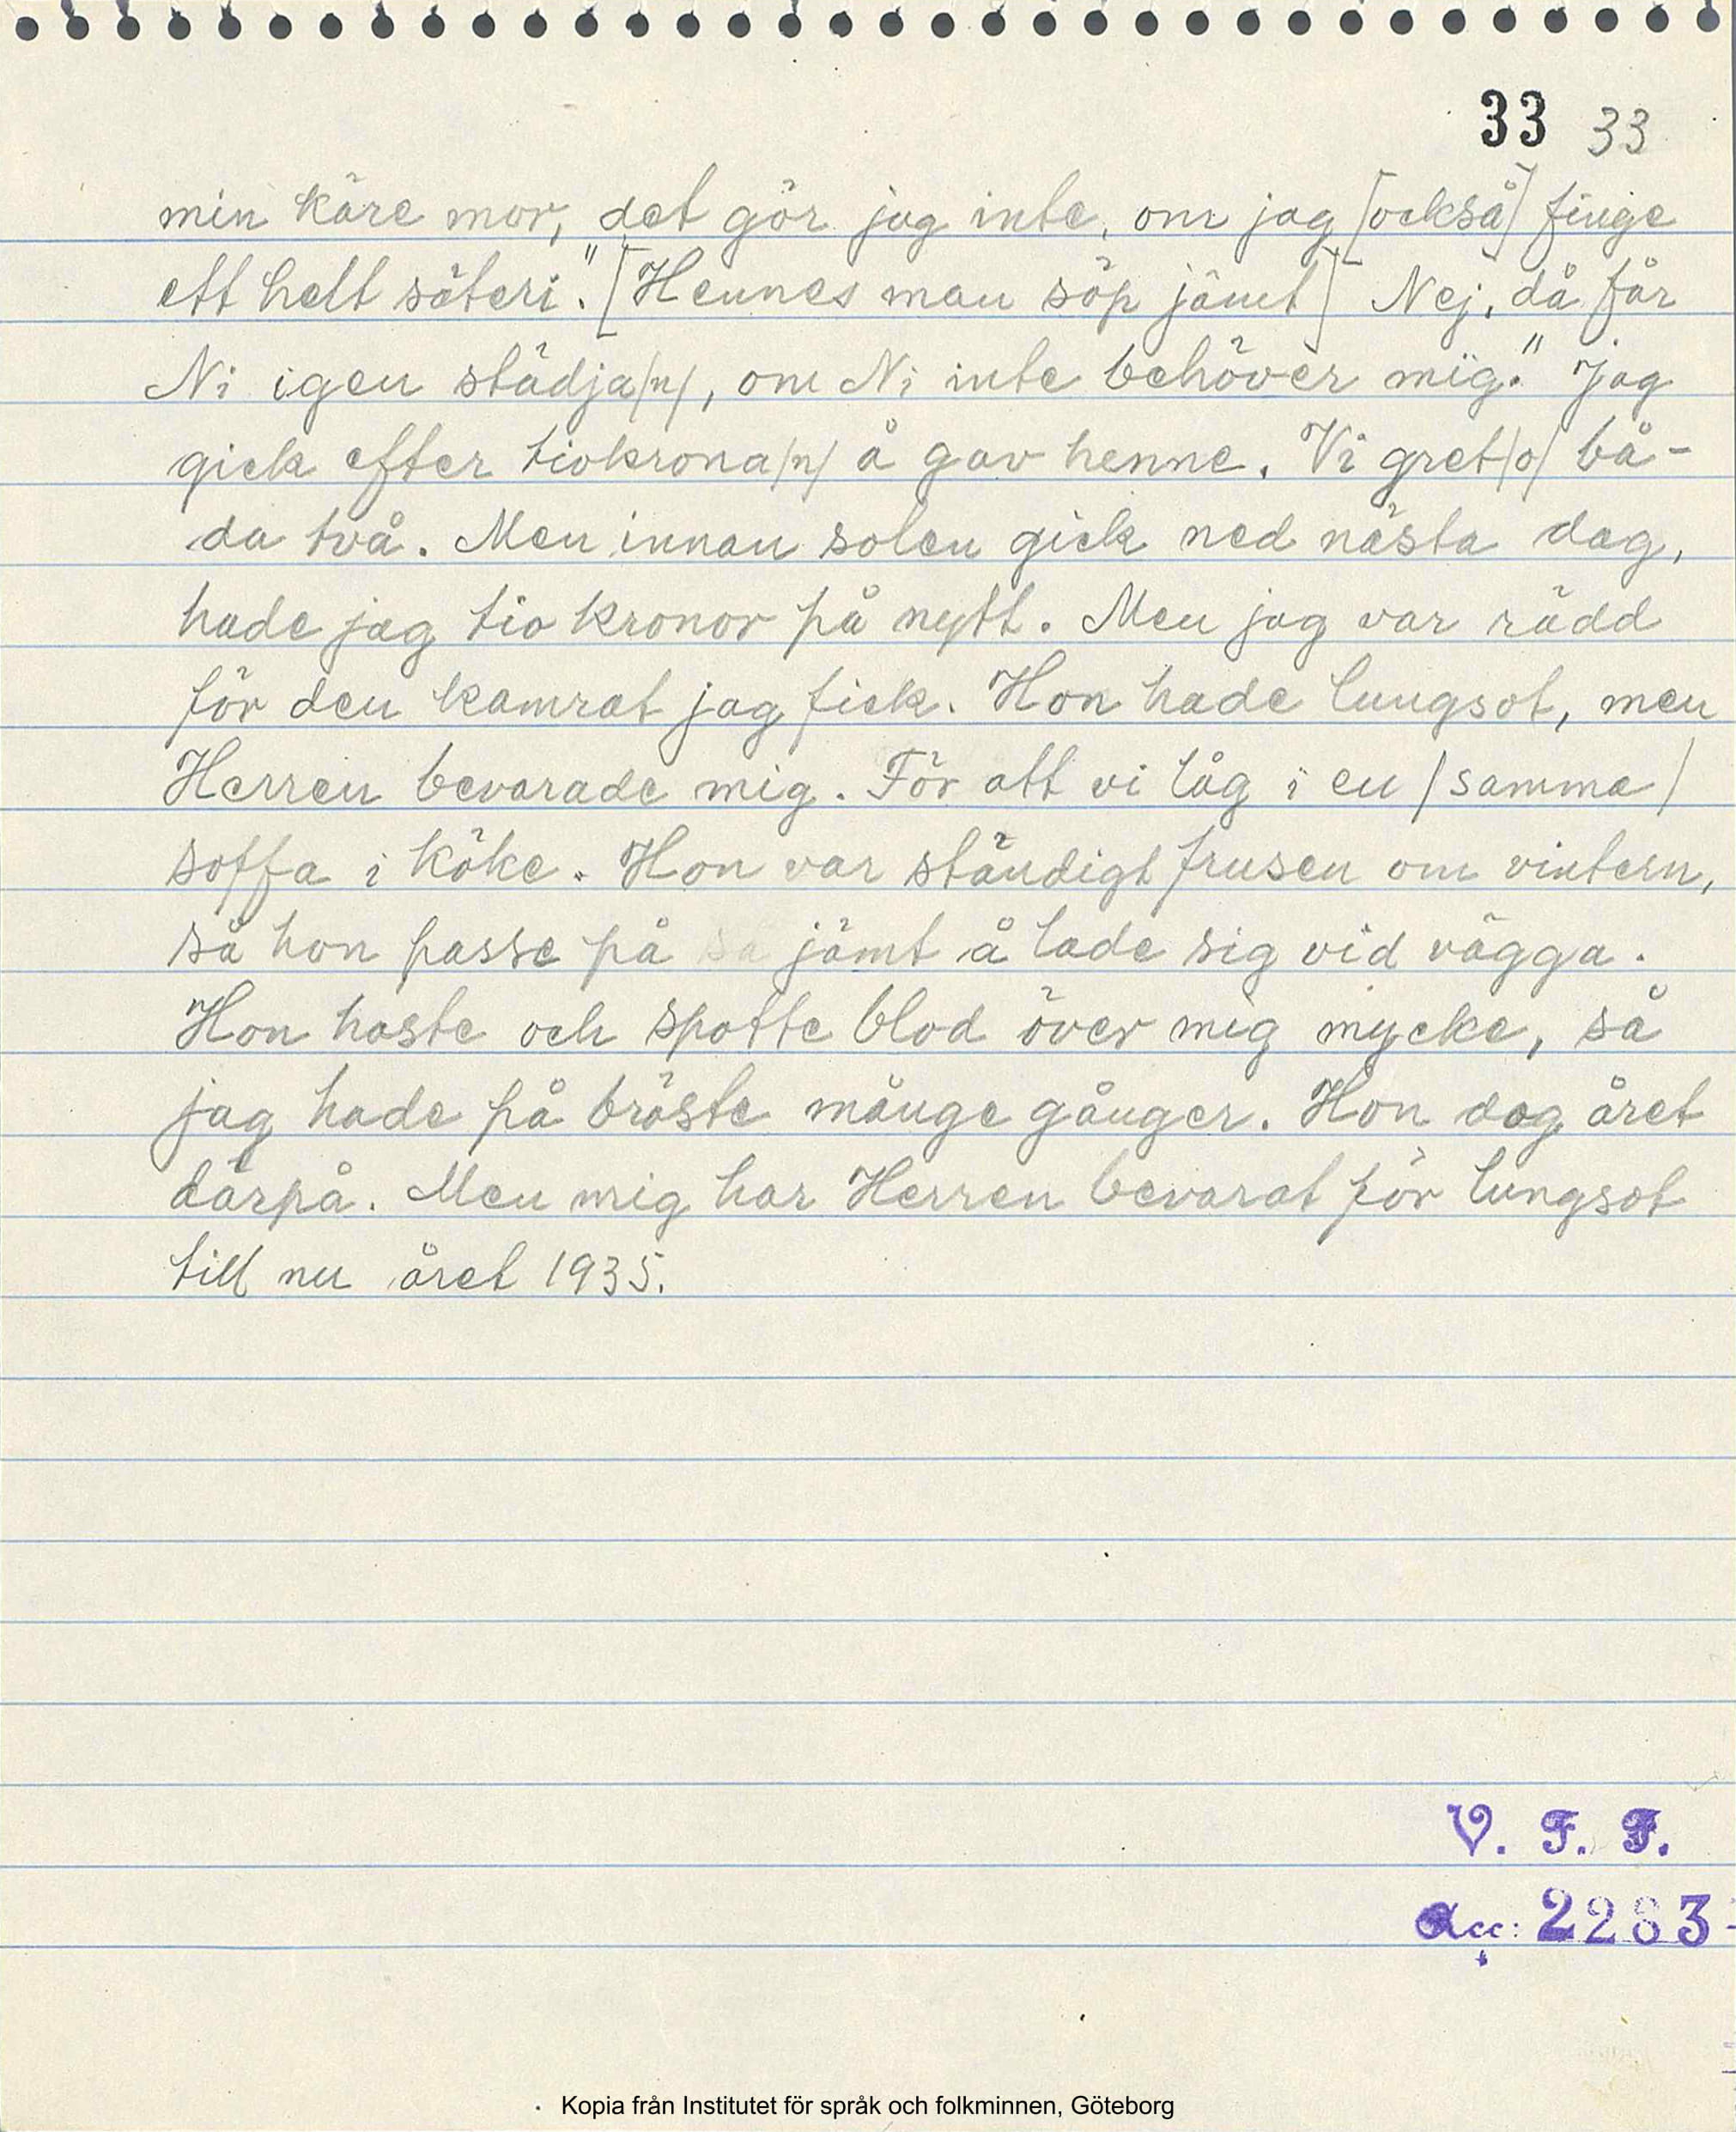 33 33
min käre mor, det gör jag inte, om jag [också] finge
ett helt säteri." [Hennes man söp jämt] Nej, då får
Ni igen städja/n/, om Ni inte behöver mig." Jag
gick efter tiokrona/n/ å gav henne. Vi gret/o/ bå-
da två. Men innan solen gick ned nästa dag,
hade jag tio kronor på nytt. Men jag var rädd
för den kamrat jag fick. Hon hade lungsot, men
Herren bevarade mig. För att vi låg i en /samma/
soffa i köke. Hon var ständigt frusen om vintern,
så hon passe på jämt å lade sig vid vägga.
Hon hoste och spotte blod över mig mycke, så
jag hade på bröste månge gånger. Hon dog året
därpå. Men mig har Herren bevarat för lungsot
till nu året 1935.
V. F. F.
Acc: 2283
Kopia från Institutet för språk och folkminnen, Göteborg